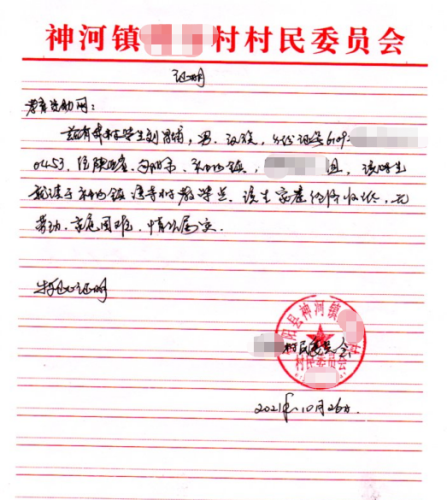 神河镇 村村民委员会
证明
教育资助网：
兹有本村学生刘 ，男，汉族，身份证号6109
0453，住陕西省，旬阳市，神河镇， 组，该学生
就读于神河镇 教学点。该生家庭 收入低，无
劳动，家庭困难，情况属实。
特此证明
阳县神河镇
村民委员会
村民委员会
2021年10月26日